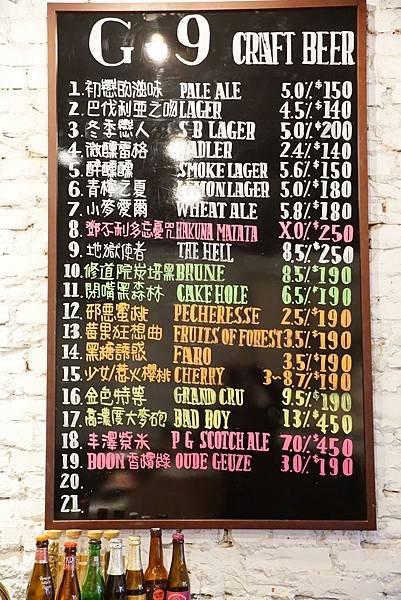 G.9 CRAFT BEER
1. 初戀的滋味 PALE ALE 5.0% $150
2. 巴伐利亞之吻 LAGER 4.5% $140
3. 冬季戀人 S B LAGER 5.0% $200
4. 微醺雷格 RADLER 2.4% $140
5. 酣醺醺 SMOKE LAGER 5.6% $150
6. 青檸之夏 LEMON LAGER 5.0% $180
7. 小麥愛爾 WHEAT ALE 5.8% $180
8. 鄧不利多忘憂咒 HAKUNA MATATA X.0% $250
9. 地獄使者 THE HELL 8.5% $250
10. 修道院炭塔黑 BRUNE 8.5% $190
11. 閉嘴黑森林 CAKE HOLE 6.5% $190
12. 邪惡蜜桃 PECHERESSE 2.5% $190
13. 莓果狂想曲 FRUITS OF FOREST 3.5% $190
14. 黑糖誘惑 FARO 3.5% $190
15. 少女惹火櫻桃 CHERRY 3~8.7% $190
16. 金色特等 GRAND CRU 9.5% $190
17. 高濃度大麥砲 BAD BOY 13% $450
18. 丰澤紫米 P G SCOTCH ALE 7.0% $450
19. BOON香檳綠 OUDE GEUZE 3.0% $190
20.
21.